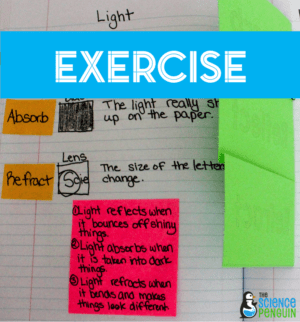 Light
EXERCISE
Absorb
The light really
up on the paper.
Lens
Refract
The size of the
change.
① Light reflects when
it bounces off shiny
things.
② Light absorbs when
it is taken into dark
things.
③ Light refracts when
it bends and makes
things look different.
THE
SCIENCE
PENGUIN